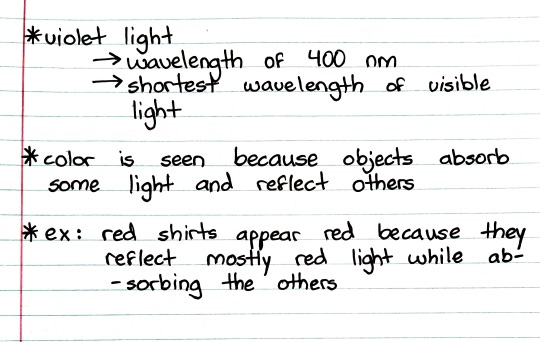 *violet light
→wavelength of 400 nm
→shortest wavelength of visible
light
*color is seen because objects absorb
some light and reflect others
*ex: red shirts appear red because they
reflect mostly red light while ab-
-sorbing the others